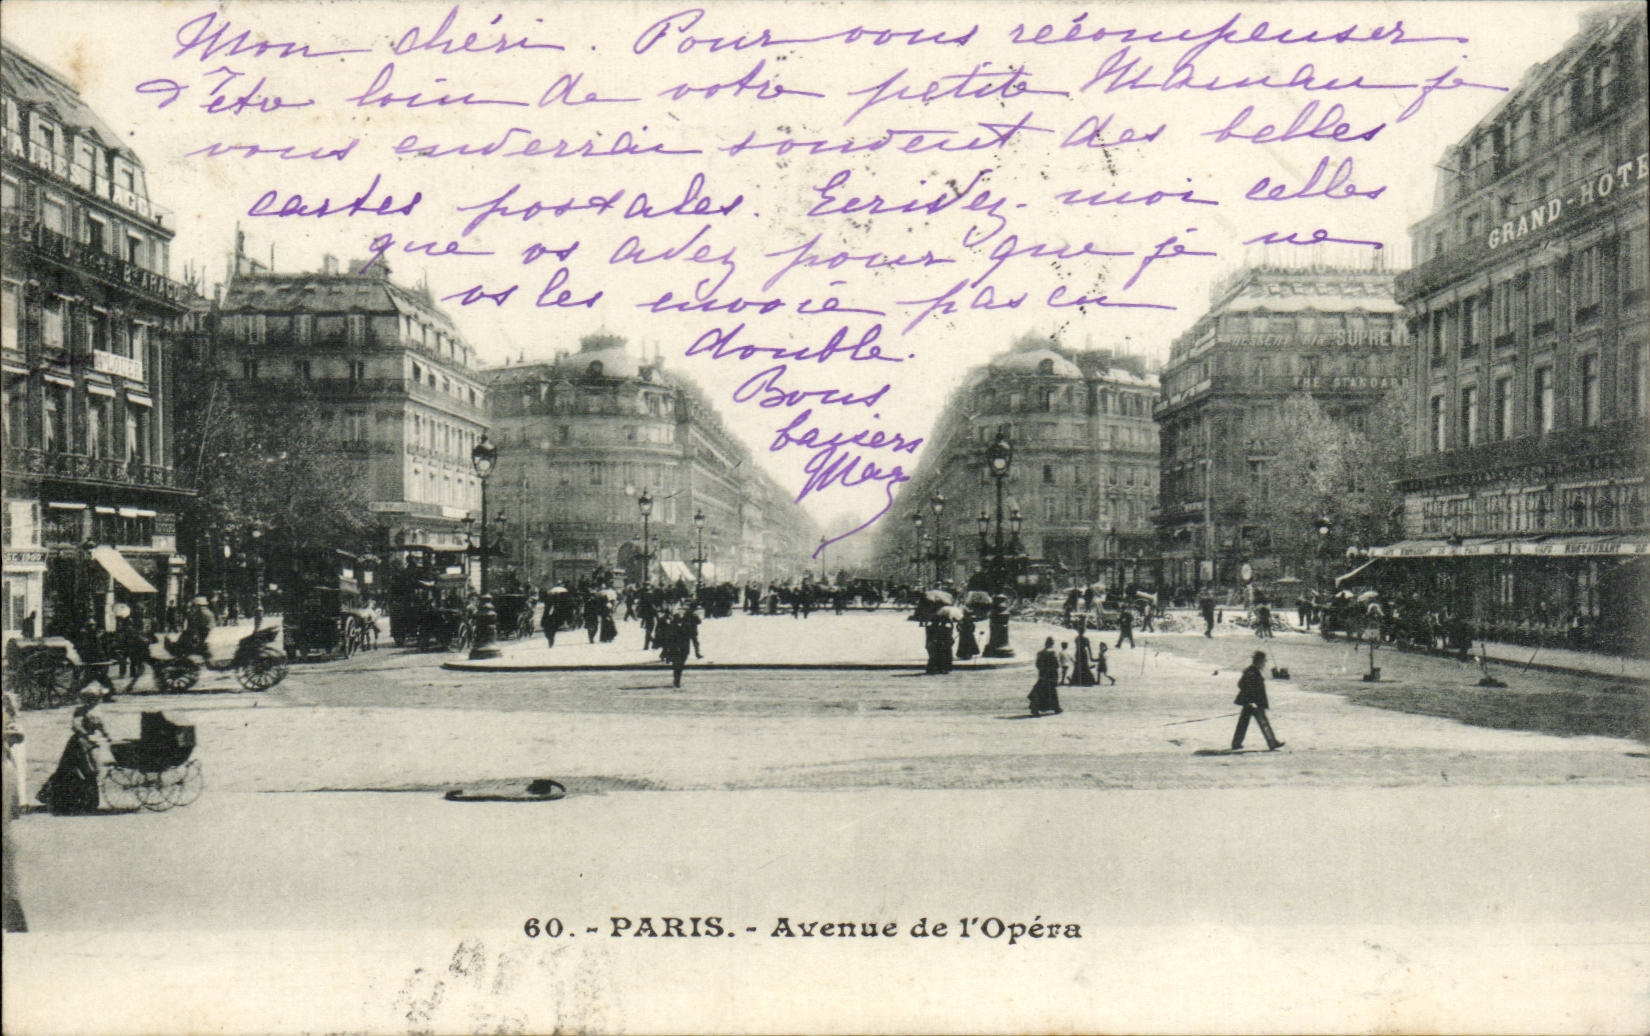 Mon chéri. Pour vous récompenser
d'être loin de votre petite Maman je
vous enverrai souvent des belles
cartes postales. Ecrivez-moi celles
que vs avez pour que je ne
vs les envoie pas en
double.
Bons
baisers
GRAND-HOTEL
SUPRÊME
THE STANDARD
CAFE RESTAURANT
60. - PARIS. - Avenue de l'Opéra